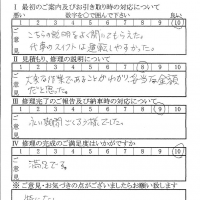 Ⅰ 最初のご案内及びお引き取り時の対応について
悪い 数字を○で囲んで下さい 良い
1 2 3 4 5 6 7 8 9 10
ご意見
こちらの説明をよく聞いてもらえた。
代車のスイフトは運転しやすかった。
Ⅱ 見積もり、修理の説明について
1 2 3 4 5 6 7 8 9 10
ご意見
大変な作業であることがわかり、妥当な金額
だと思った。
Ⅲ 修理完了のご報告及び納車時の対応について
1 2 3 4 5 6 7 8 9 10
ご意見
永い期間ごくろう様でした。
Ⅳ 修理の完成のご満足度はいかがですか
1 2 3 4 5 6 7 8 9 10
ご意見
満足です。
※ご意見・お気づきの点がございましたらお願い致します